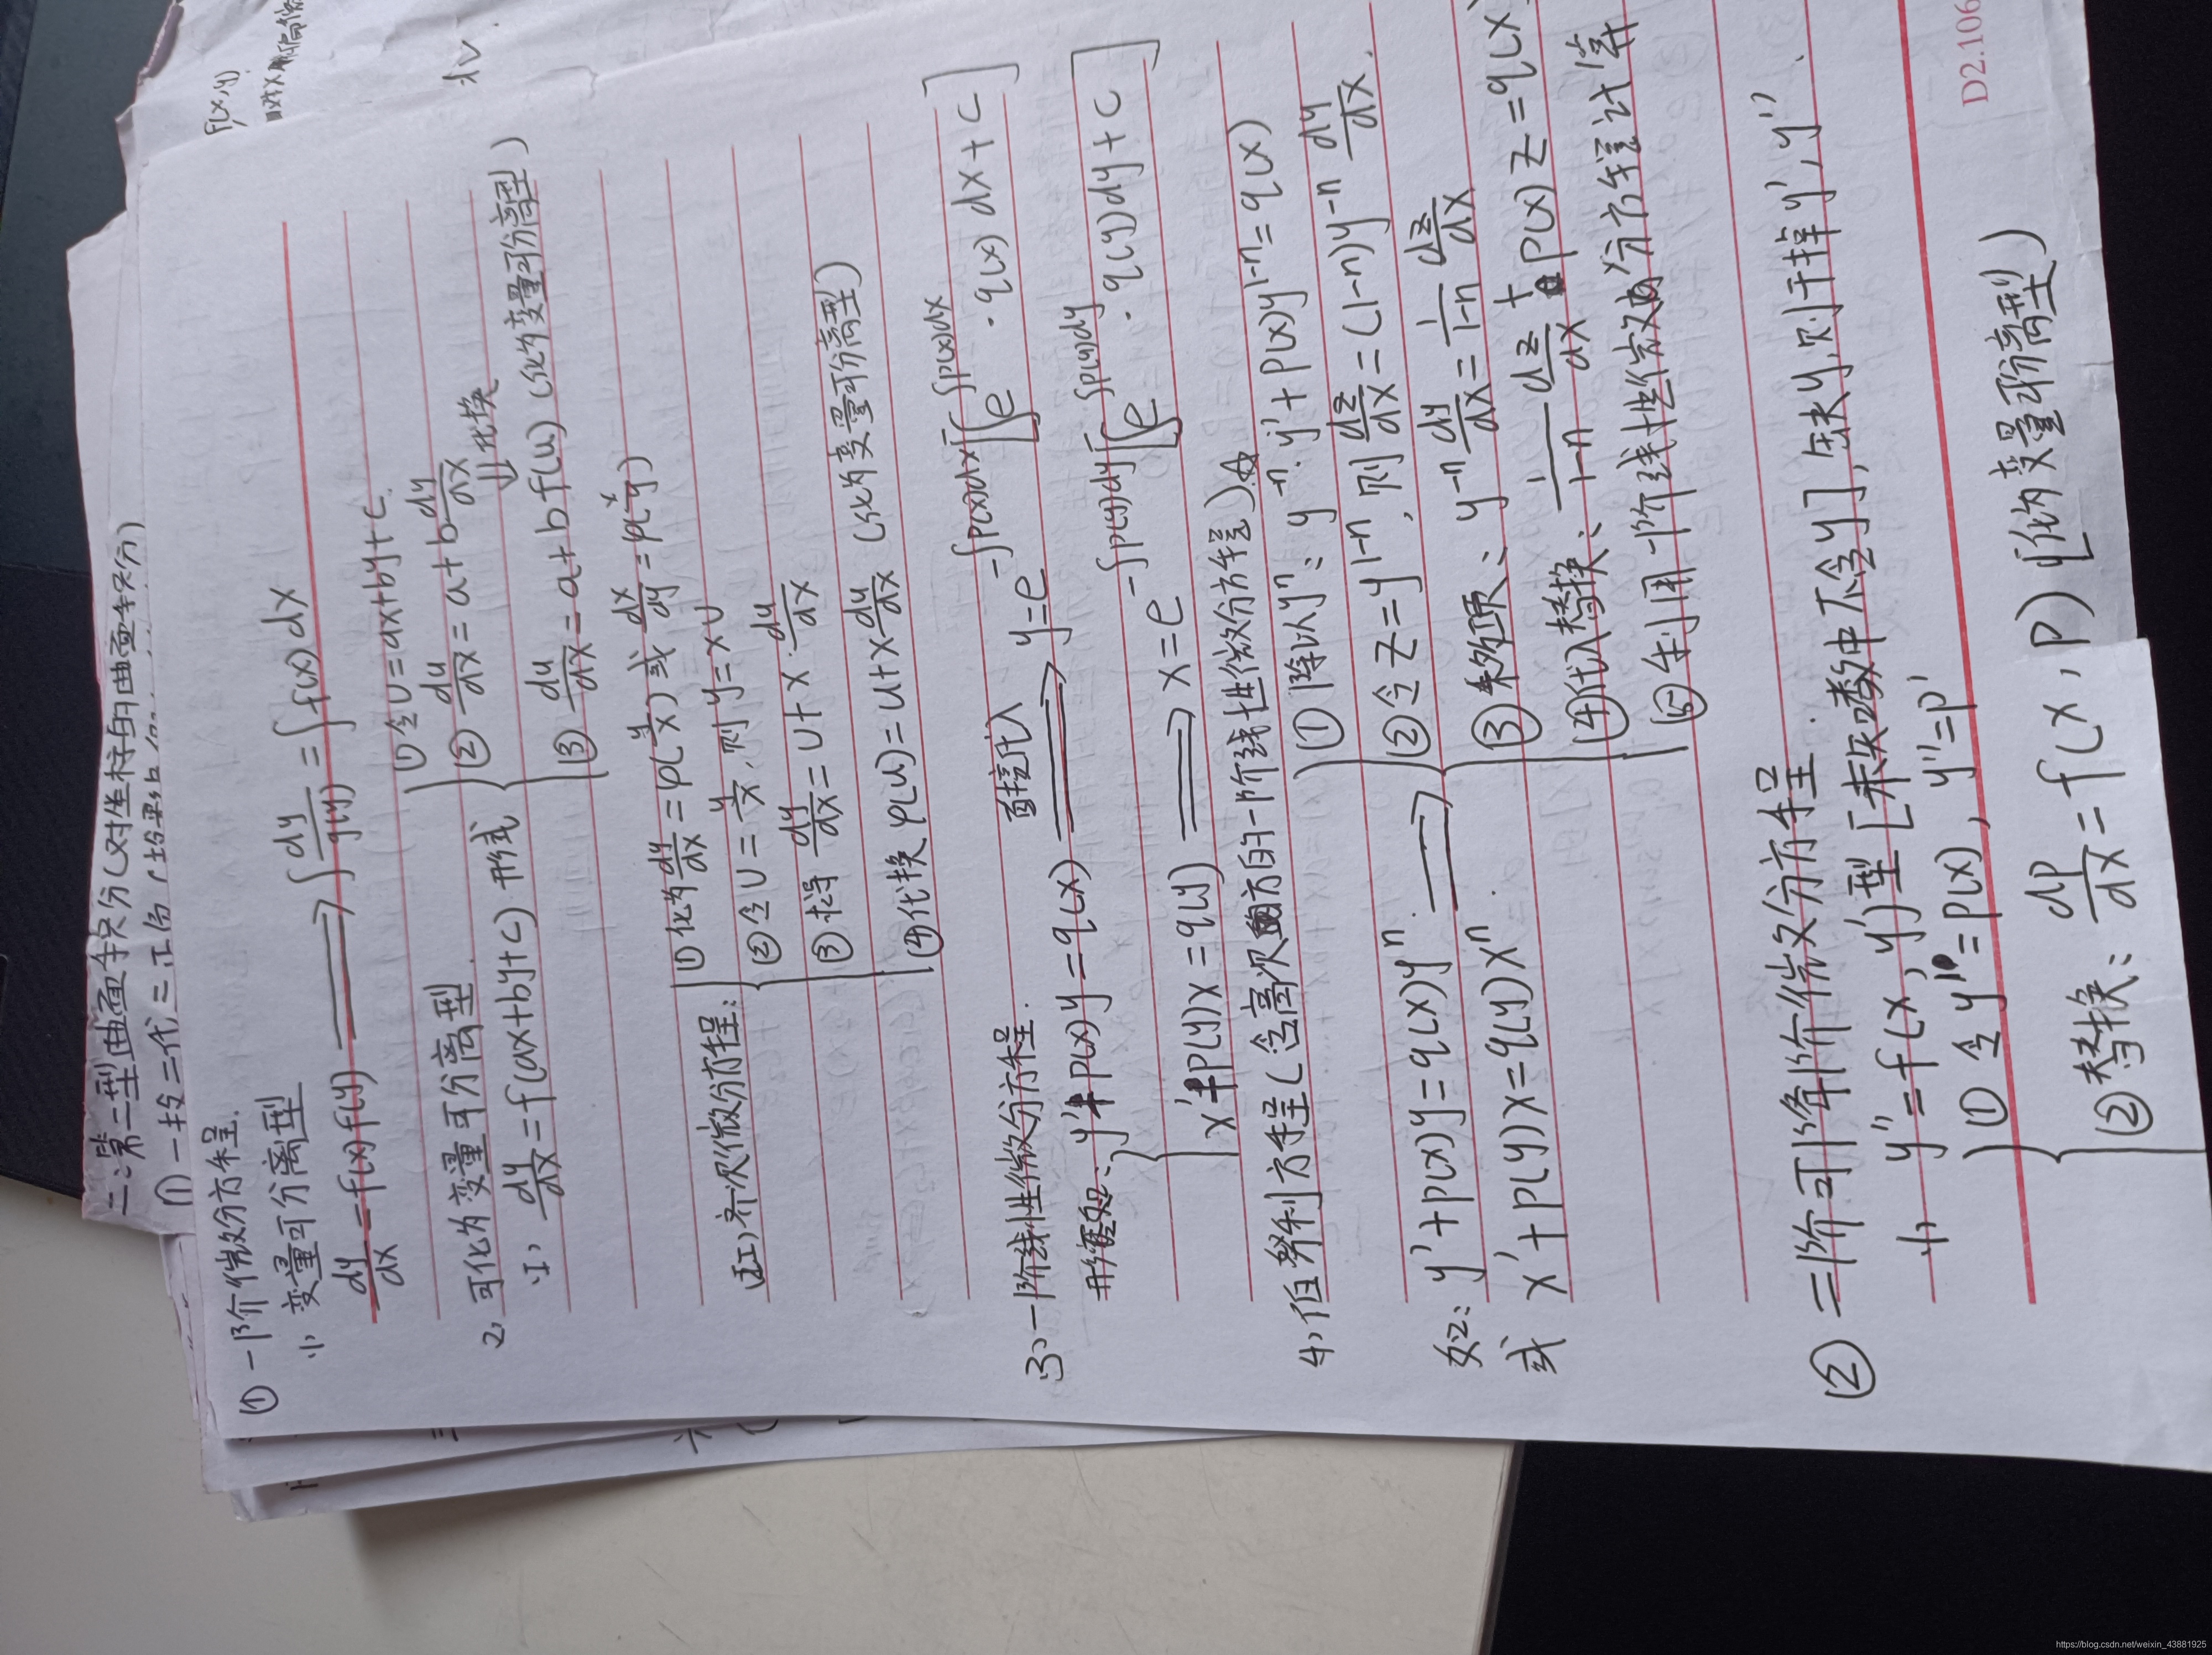 二：第二型曲面积分(对坐标的曲面积分)
① 一投二代三正负
F(x,y)
dv
① 一阶微分方程.
1、变量可分离型
dy/dx = f(x)f(y) ⟹ ∫dy/g(y) = ∫f(x)dx
2、可化为变量可分离型.
(I)、dy/dx = f(ax+by+c) 形式
① 令 u = ax+by+c.
② du/dx = a+b dy/dx
⇓ 代换
③ du/dx = a+bf(u) (化为变量可分离型)
(II)、齐次微分方程:
① 化为 dy/dx = φ(y/x) 或 dx/dy = φ(x/y)
② 令 u = y/x, 则 y = xu
③ 得 dy/dx = u+x·du/dx
④ 代换 φ(u) = u+x du/dx (化为变量可分离型)
3、一阶线性微分方程.
y'+P(x)y = q(x) 直接代入 ⟹ y = e^{-∫P(x)dx}[∫e^{∫P(x)dx}·q(x)dx+C]
x'+P(y)x = q(y) ⟹ x = e^{-∫P(y)dy}[∫e^{∫P(y)dy}·q(y)dy+C]
4、伯努利方程(含高次方的一阶线性微分方程)☆
如: y'+P(x)y = q(x)y^n. ⟹
或 x'+P(y)x = q(y)x^n.
① 除以y^n: y^{-n}·y'+P(x)y^{1-n} = q(x)
② 令 z = y^{1-n}, 则 dz/dx = (1-n)y^{-n} dy/dx.
③ 乘数项: y^{-n} dy/dx = 1/(1-n) dz/dx
④ 代入替换: 1/(1-n) dz/dx + P(x)z = q(x)
⑤ 利用一阶线性微分方程计算
② 二阶可降阶微分方程.
1、y'' = f(x, y')型 [未知数中不含y], 缺y, 则干掉y', y''.
① 令 y' = P(x), y'' = p'
② 替换: dp/dx = f(x, P) [化为变量可分离型]
D2.106
https://blog.csdn.net/weixin_43881925